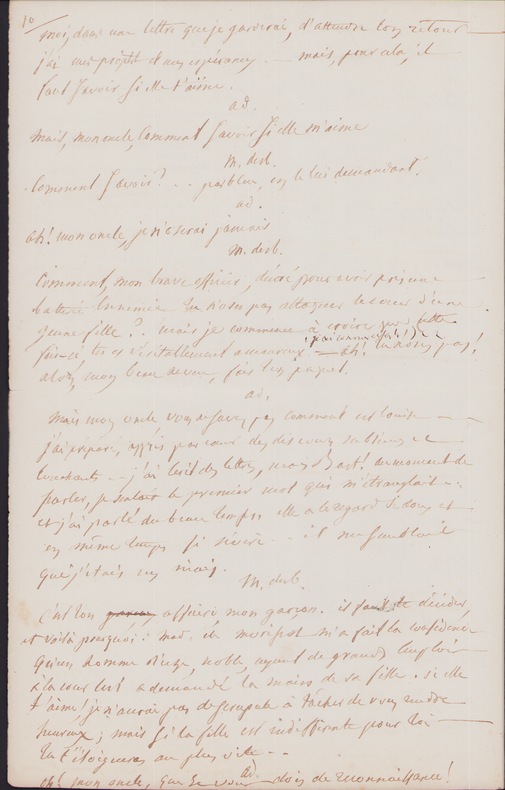 10
moi, dans une lettre que je garderai, d'attendre ton retour
j'ai mes projets et mes espérances — mais, pour cela, il
faut savoir si elle t'aime.
ad.
Mais, mon oncle, comment savoir si elle m'aime
M. desb.
Comment savoir? .. parbleu, en le lui demandant!
ad.
ah! mon oncle, je n'oserai jamais
M. desb.
Comment, mon brave officier, décoré pour avoir pris une
batterie ennemie tu n'oses pas attaquer le coeur d'une
jeune fille?. mais je commence à croire que cette
fois-ci tu es véritablement amoureux — ah! tu n'oses pas!
alors, mon beau neveu, fais ton paquet.
ad.
Mais mon oncle, vous ne savez pas comment est Louise —
j'ai préparé, appris par coeur des discours sublimes et
touchants — j'ai écrit des lettres, mais bast! au moment de
parler, je sentais le premier mot qui m'étranglait ..
et j'ai parlé du beau temps. elle a le regard si doux et
en même temps si sévère .. il me semblait
que j'étais un niais.
M. desb.
C'est ton affaire mon garçon. il faut te décider,
et voilà pourquoi: mad. de m'a fait la confidence
qu'un homme d'uzes, noble, ayant de grands emplois
à la cour lui a demandé la main de sa fille. si elle
t'aime, je n'aurai pas de scrupule à tâcher de vous rendre
heureux; mais si la fille est indifférente pour toi —
tu t'éloigneras au plus vite —
ad.
oh! mon oncle, que je vous dois de reconnaissance!